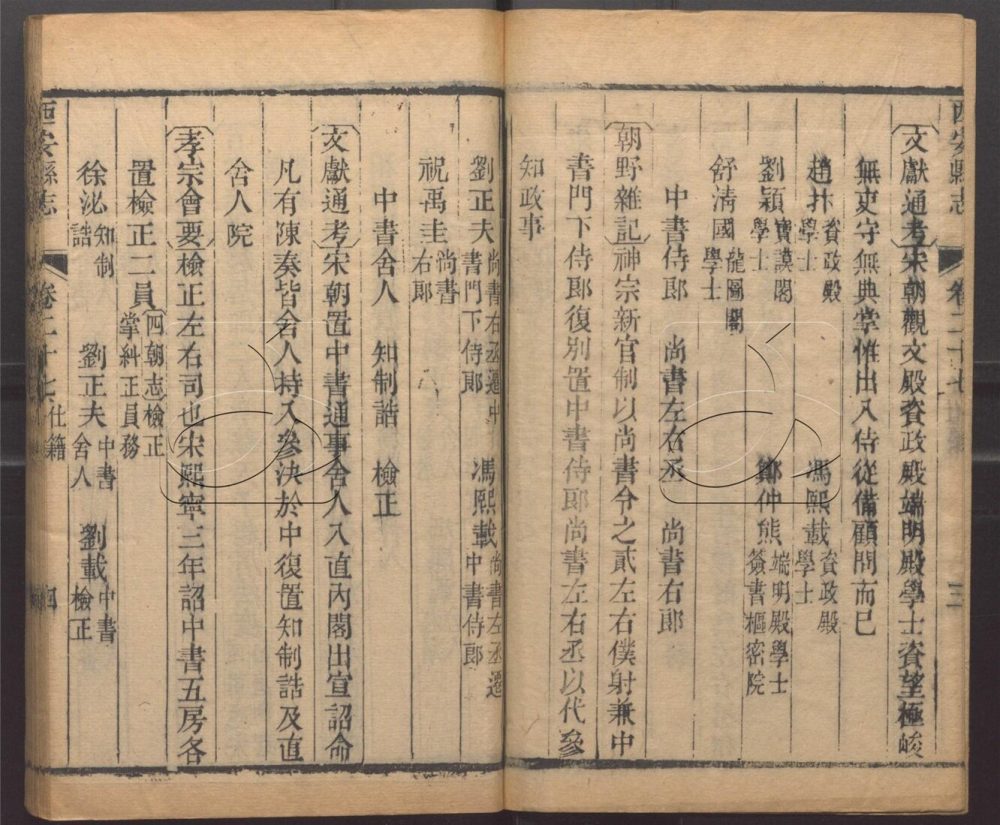 西安縣志 卷二十七 三
文獻通考宋朝觀文殿資政殿端明殿學士資望極峻
無吏守無典掌惟出入侍從備顧問而已
趙抃資政殿學士 馮熙載資政殿學士
劉穎寶謨閣學士 鄭仲熊端明殿學士簽書樞密院
舒清國龍圖閣學士
中書侍郎 尚書左右丞 尚書右郎
朝野雜記神宗新官制以尚書令之貳左右僕射兼中
書門下侍郎復別置中書侍郎尚書左右丞以代參
知政事
劉正夫尚書右丞遷中書門下侍郎 馮熙載尚書左丞遷中書侍郎
祝禹圭尚書右郎
中書舍人 知制誥 檢正
文獻通考宋朝置中書通事舍人入直內閣出宣詔命
凡有陳奏皆舍人持入參決於中復置知制誥及直
舍人院
孝宗會要檢正左右司也宋熙寧三年詔中書五房各
置檢正二員四朝志檢正掌糾正員務
徐泌知制誥 劉正夫中書舍人 劉載中書檢正
西安縣志 卷二十七 仕籍 四